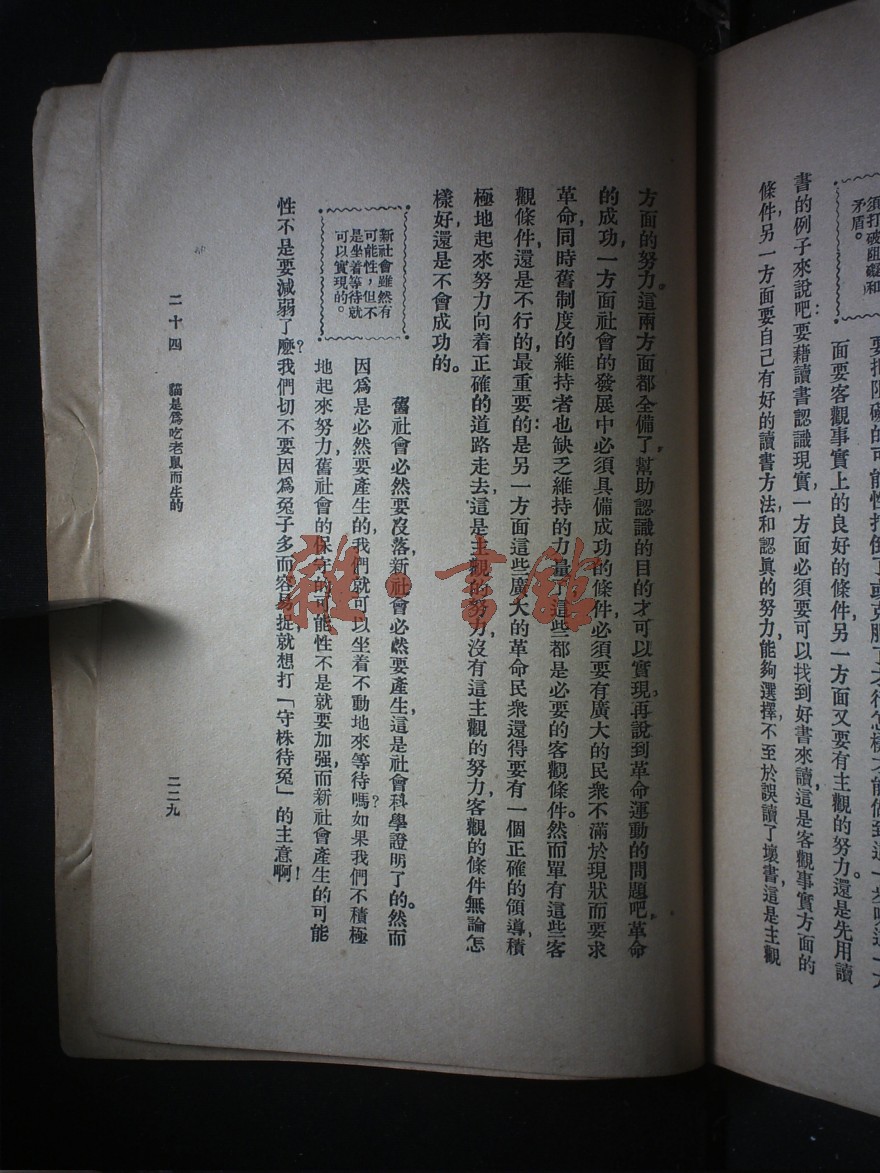 須打破阻礙和
矛盾。
面要客觀事實上的良好的條件另一方面又要有主觀的努力。還是先用讀
書的例子來說吧：要藉讀書認識現實，一方面必須要可以找到好書來讀，這是客觀事實方面的
條件，另一方面要自己有好的讀書方法和認眞的努力，能夠選擇，不至於誤讀了壞書，這是主觀
方面的努力。這兩方面都全備了，幫助認識的目的才可以實現，再說到革命運動的問題吧，革命
的成功，一方面社會的發展中必須具備成功的條件，必須要有廣大的民衆不滿於現狀而要求
革命，同時舊制度的維持者也缺乏維持的力量了，這些都是必要的客觀條件。然而單有這些客
觀條件，還是不行的，最重要的是：另一方面這些廣大的革命民衆還得要有一個正確的領導，積
極地起來努力向着正確的道路走去，這是主觀的努力，沒有這主觀的努力，客觀的條件無論怎
樣好，還是不會成功的。
新社會雖然有
可能性，但不
是坐着等待就
可以實現的。
舊社會必然要沒落，新社會必然要產生，這是社會科學證明了的。然而
因爲是必然要產生的，我們就可以坐着不動地來等待嗎？如果我們不積極
地起來努力，舊社會的保守的可能性不是就要加强，而新社會產生的可能
性不是要減弱了麽？我們切不要因爲兔子多而容易捉，就想打「守株待兔」的主意啊！
二十四 貓是爲吃老鼠而生的
二二九
雜·書館